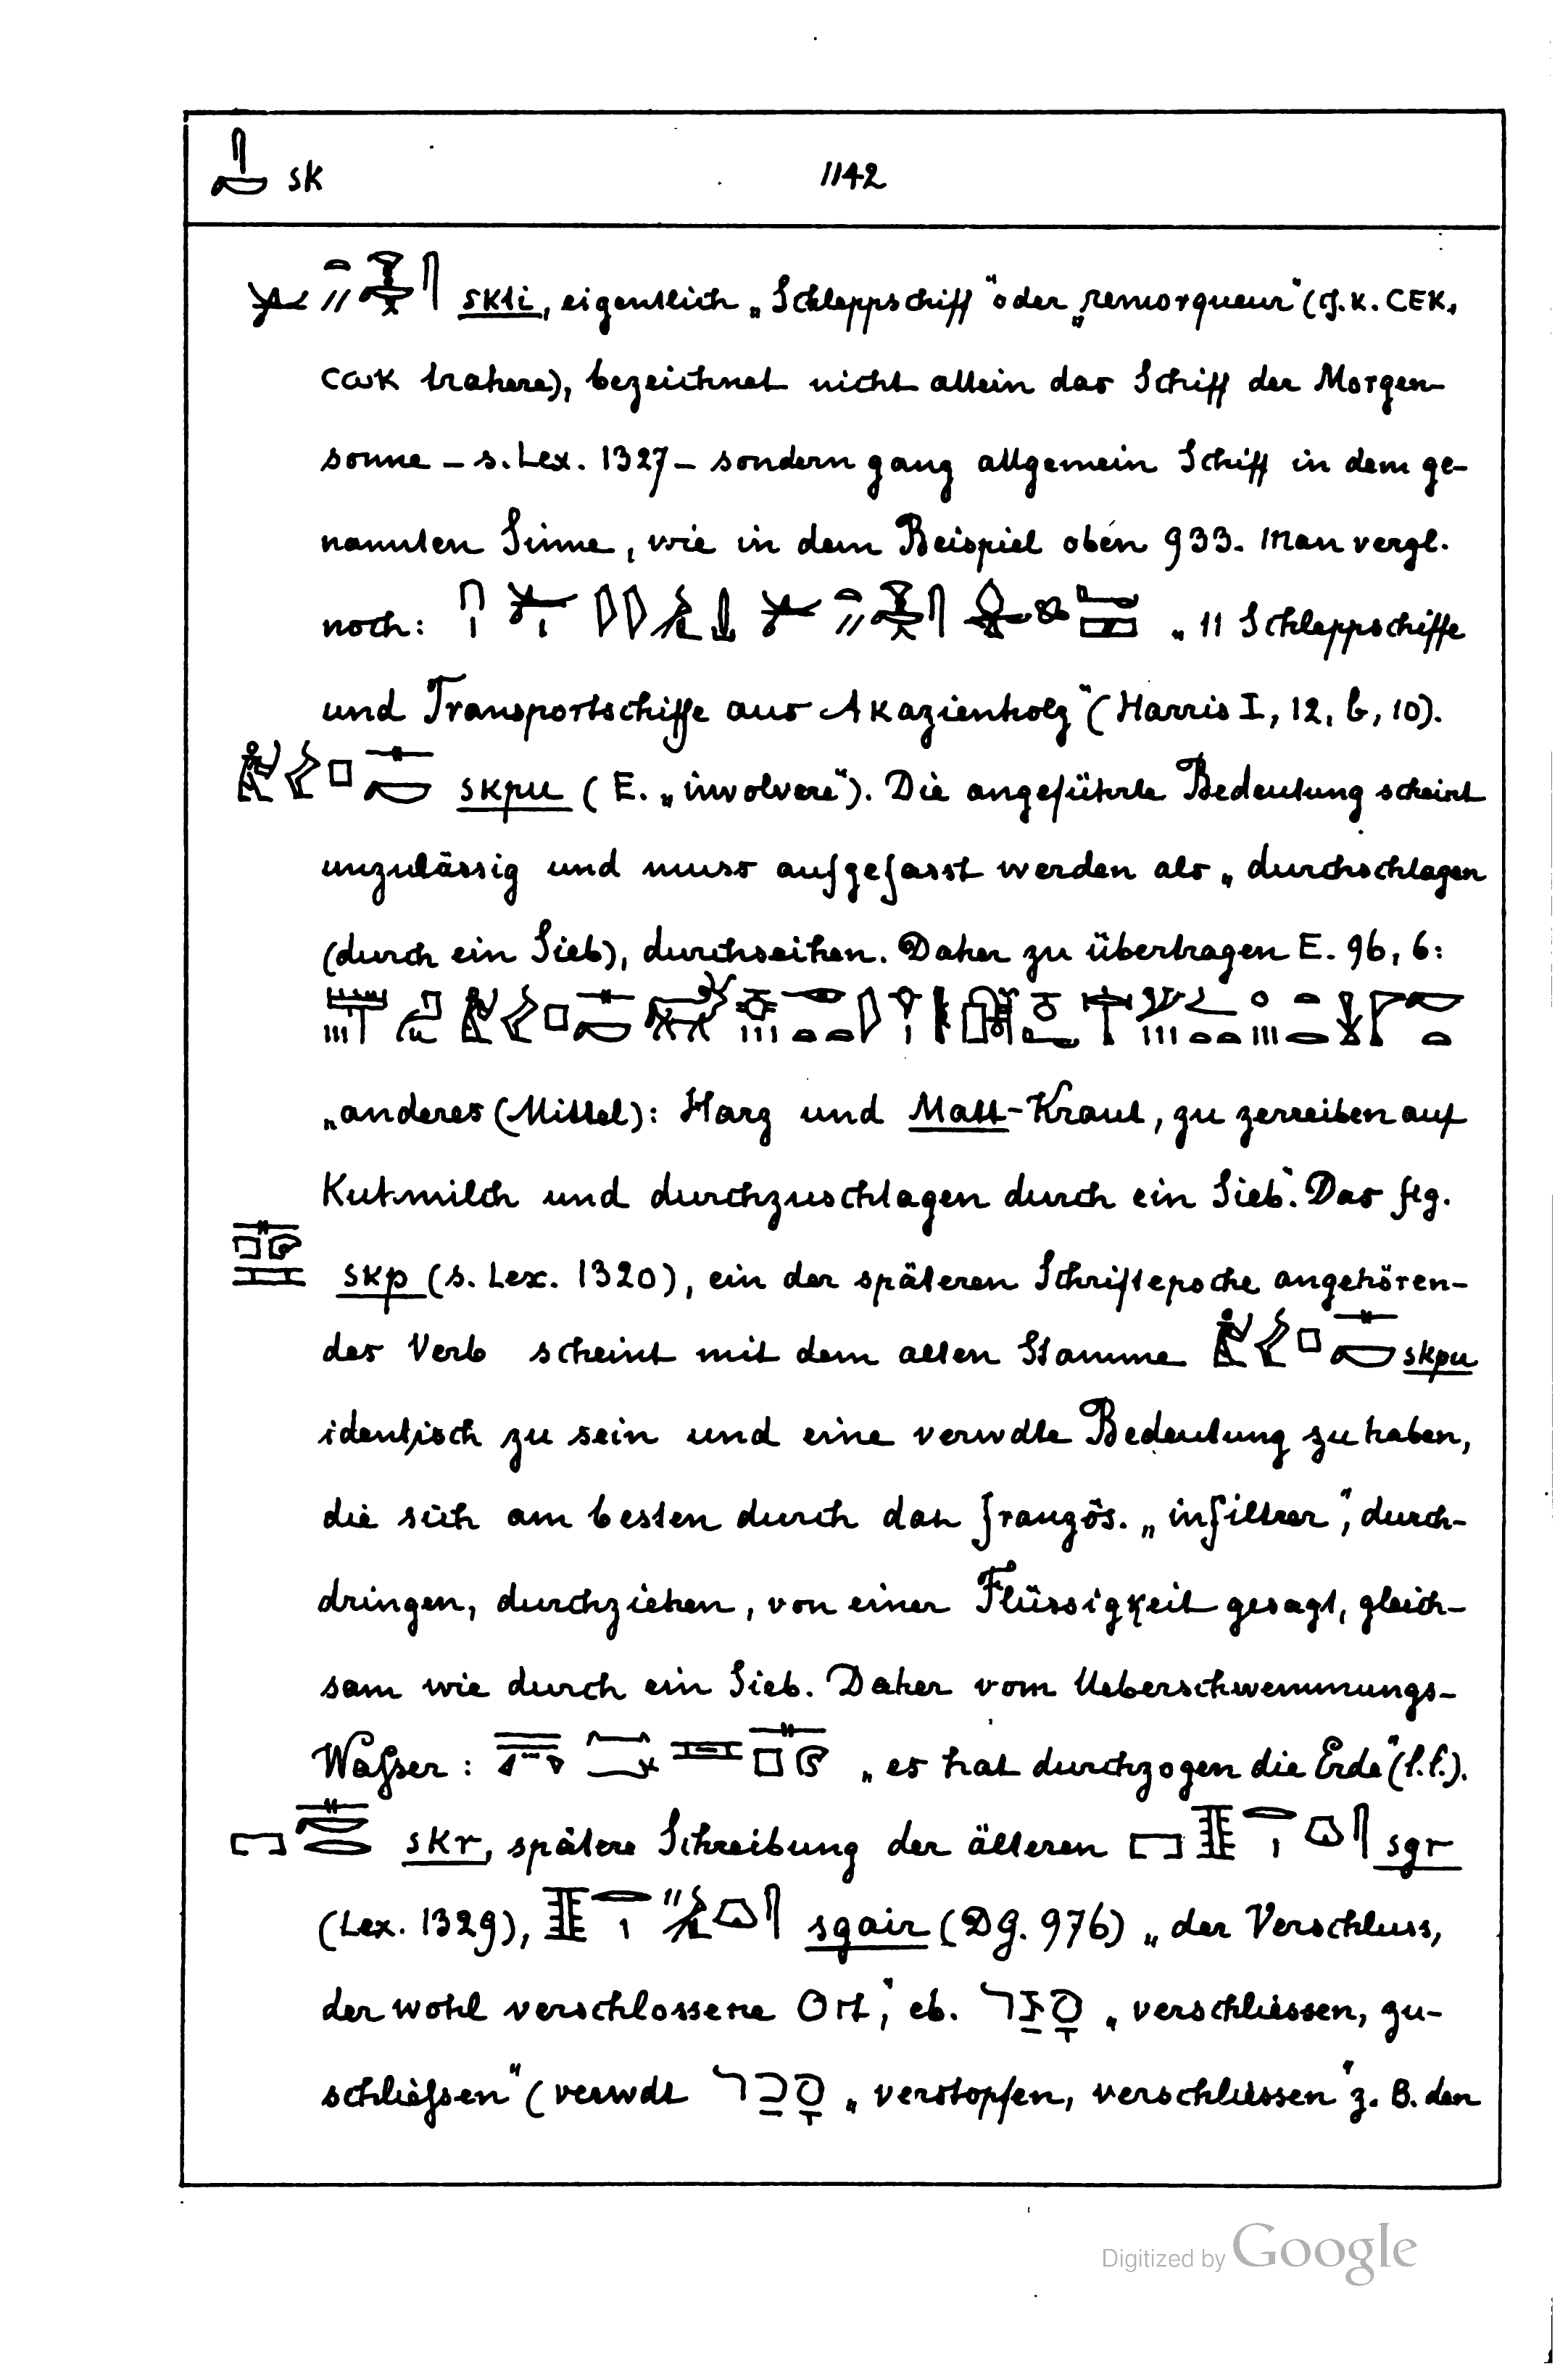 sk 1142
skti, eigentlich „Schleppschiff" oder „remorqueur" (cf. K. CEK,
CωK trahere), bezeichnet nicht allein das Schiff der Morgen-
sonne – s. Lex. 1327 – sondern ganz allgemein Schiff in dem ge-
nannten Sinne, wie in dem Beispiel oben 933. Man vergl.
noch: „11 Schleppschiffe
und Transportschiffe aus Akazienholz" (Harris I, 12, b, 10).
skpu (E. „involvere"). Die angeführte Bedeutung scheint
unzulässig und muss aufgefasst werden als „durchschlagen
(durch ein Sieb), durchseihen. Daher zu übertragen E. 96, 6:
„anderes (Mittel): Harz und Matt-Kraut, zu zerreiben auf
Kuhmilch und durchzuschlagen durch ein Sieb". Das flg.
skp (s. Lex. 1320), ein der späteren Schriftepoche angehören-
des Verb scheint mit dem alten Stamme skpu
identisch zu sein und eine verwdte Bedeutung zu haben,
die sich am besten durch das französ. „infiltrer", durch-
dringen, durchziehen, von einer Flüssigkeit gesagt, gleich-
sam wie durch ein Sieb. Daher vom Ueberschwemmungs-
Waßer: „es hat durchzogen die Erde" (l.l.).
skr, spätere Schreibung der älteren sgr
(Lex. 1329), sgair (DG. 976) „der Verschluss,
der wohl verschlossene Ort", eb. סָגַר „verschliessen, zu-
schließen" (verwdt סָכַר „verstopfen, verschliessen" z. B. den
Digitized by Google